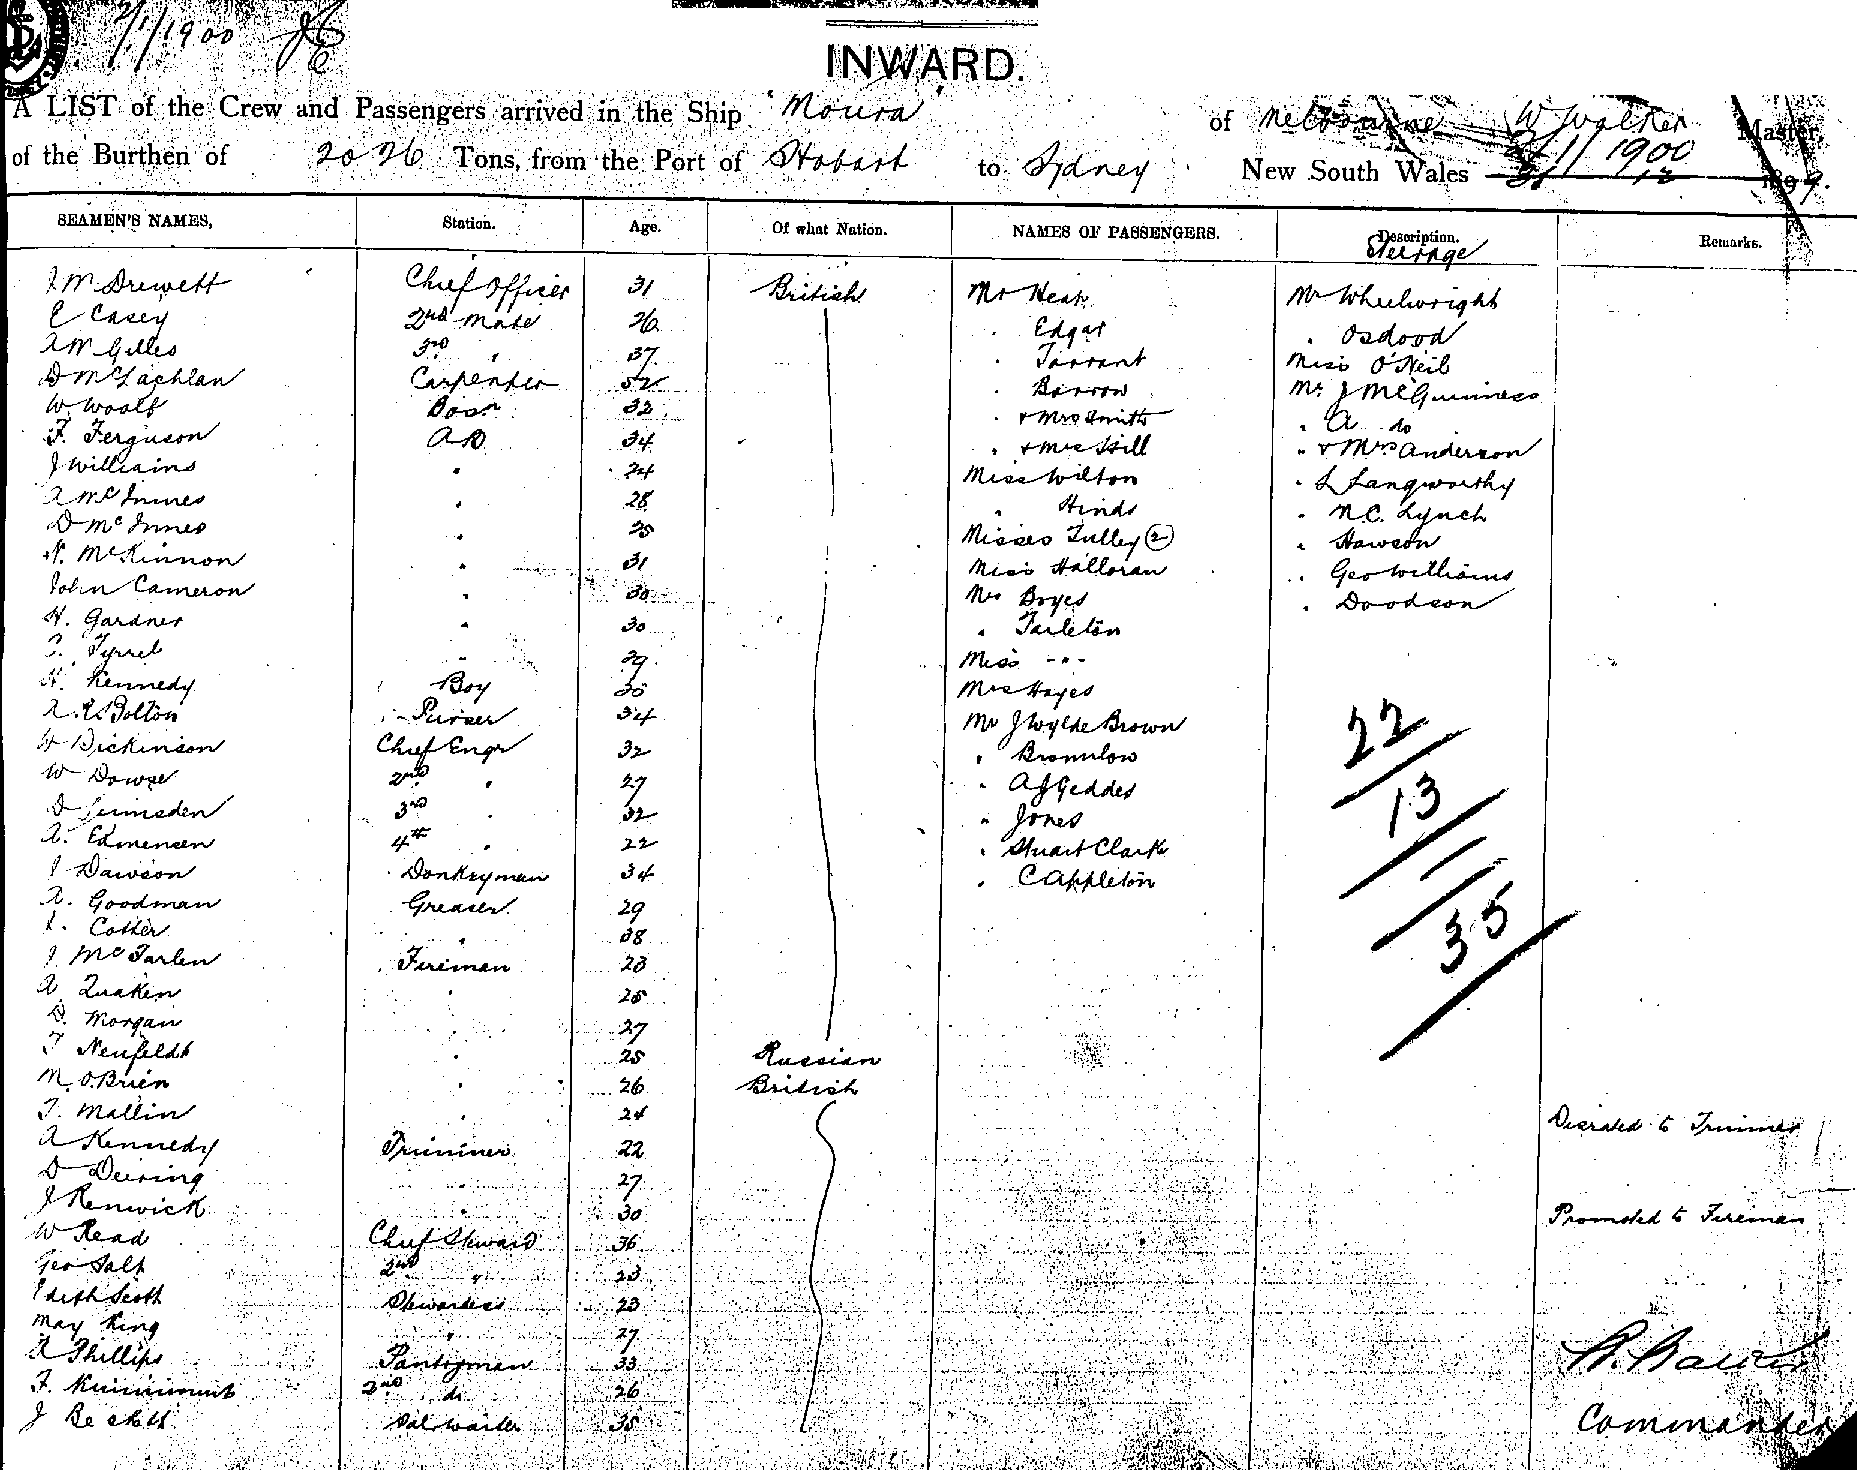 2/1/1900
INWARD.
A LIST of the Crew and Passengers arrived in the Ship "Moura" of Melbourne W Walker Master,
of the Burthen of 2026 Tons, from the Port of Hobart to Sydney New South Wales 2/1/1900
SEAMEN'S NAMES, Station. Age. Of what Nation. NAMES OF PASSENGERS. Description. Remarks.
Steerage
J M Drewett Chief Officer 31 British Mr Heah Mr Wheelwright
C Casey 2nd Mate 26 " Edgar " Osdood
A M Gilles 3rd " 37 " Tarrant Miss O'Neil
D McLachlan Carpenter 52 " Barrow Mr J McGuinness
W. Woolf Bosn 32 " & Mrs Smith " A do
F. Ferguson AB 34 " & Mrs Hill " & Mrs Anderson
J Williams " 24 Miss Wilton " L Langworthy
A McInnes " 28 " Hinds " N.C. Lynch
D McInnes " 25 Misses Tulley (2) " Hawson
N. McKinnon " 31 Miss Halloran " Geo Williams
John Cameron " 30 Mrs Boyes " Doodson
H. Gardner " 30 " Tarleton
Tyrrel " 29 Miss - " -
H. Kennedy Boy Mrs Hayes
A. R. Bolton Purser 34 Mr J Wylde Brown
W Dickinson Chief Engr 32 " Bromilow
W Dowse 2nd " 27 " A J Geddes
D Lumsden 3rd " 32 " Jones
A. Edmensen 4th " 22 " Stuart Clark
J Dawson Donkeyman 34 " C Appleton
A. Goodman Greaser 29
Cotter " 38
J McFarlen Fireman 23
A Quaken " 25
D. Morgan " 27
F Neufeldt " 25 Russian
M. O'Brien " 26 British
T. Mallin " 24 Disrated to Trimmer
A Kennedy Trimmer 22
D Deering " 27
J Renwick " 30 Promoted to Fireman
W Read Chief Steward 36
Geo Salt 2nd " 23
Edith Scott Stewardess 23
May King " 27
A Phillips Pantryman 33
F. Kinnimunt 2nd do 26
J Beckett Sal Waiter 35
22
13
35
Commander